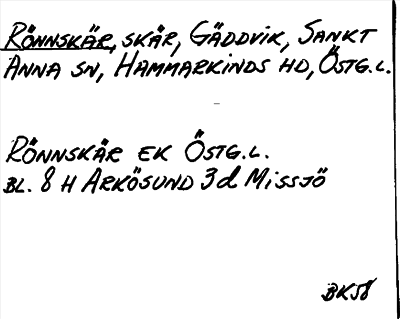 RÖNNSKÄR, SKÄR, GÄDDVIK, SANKT
ANNA SN, HAMMARKINDS HD, ÖSTG.L.
RÖNNSKÄR EK ÖSTG.L.
BL. 8 H ARKÖSUND 3d MISSJÖ
BK58